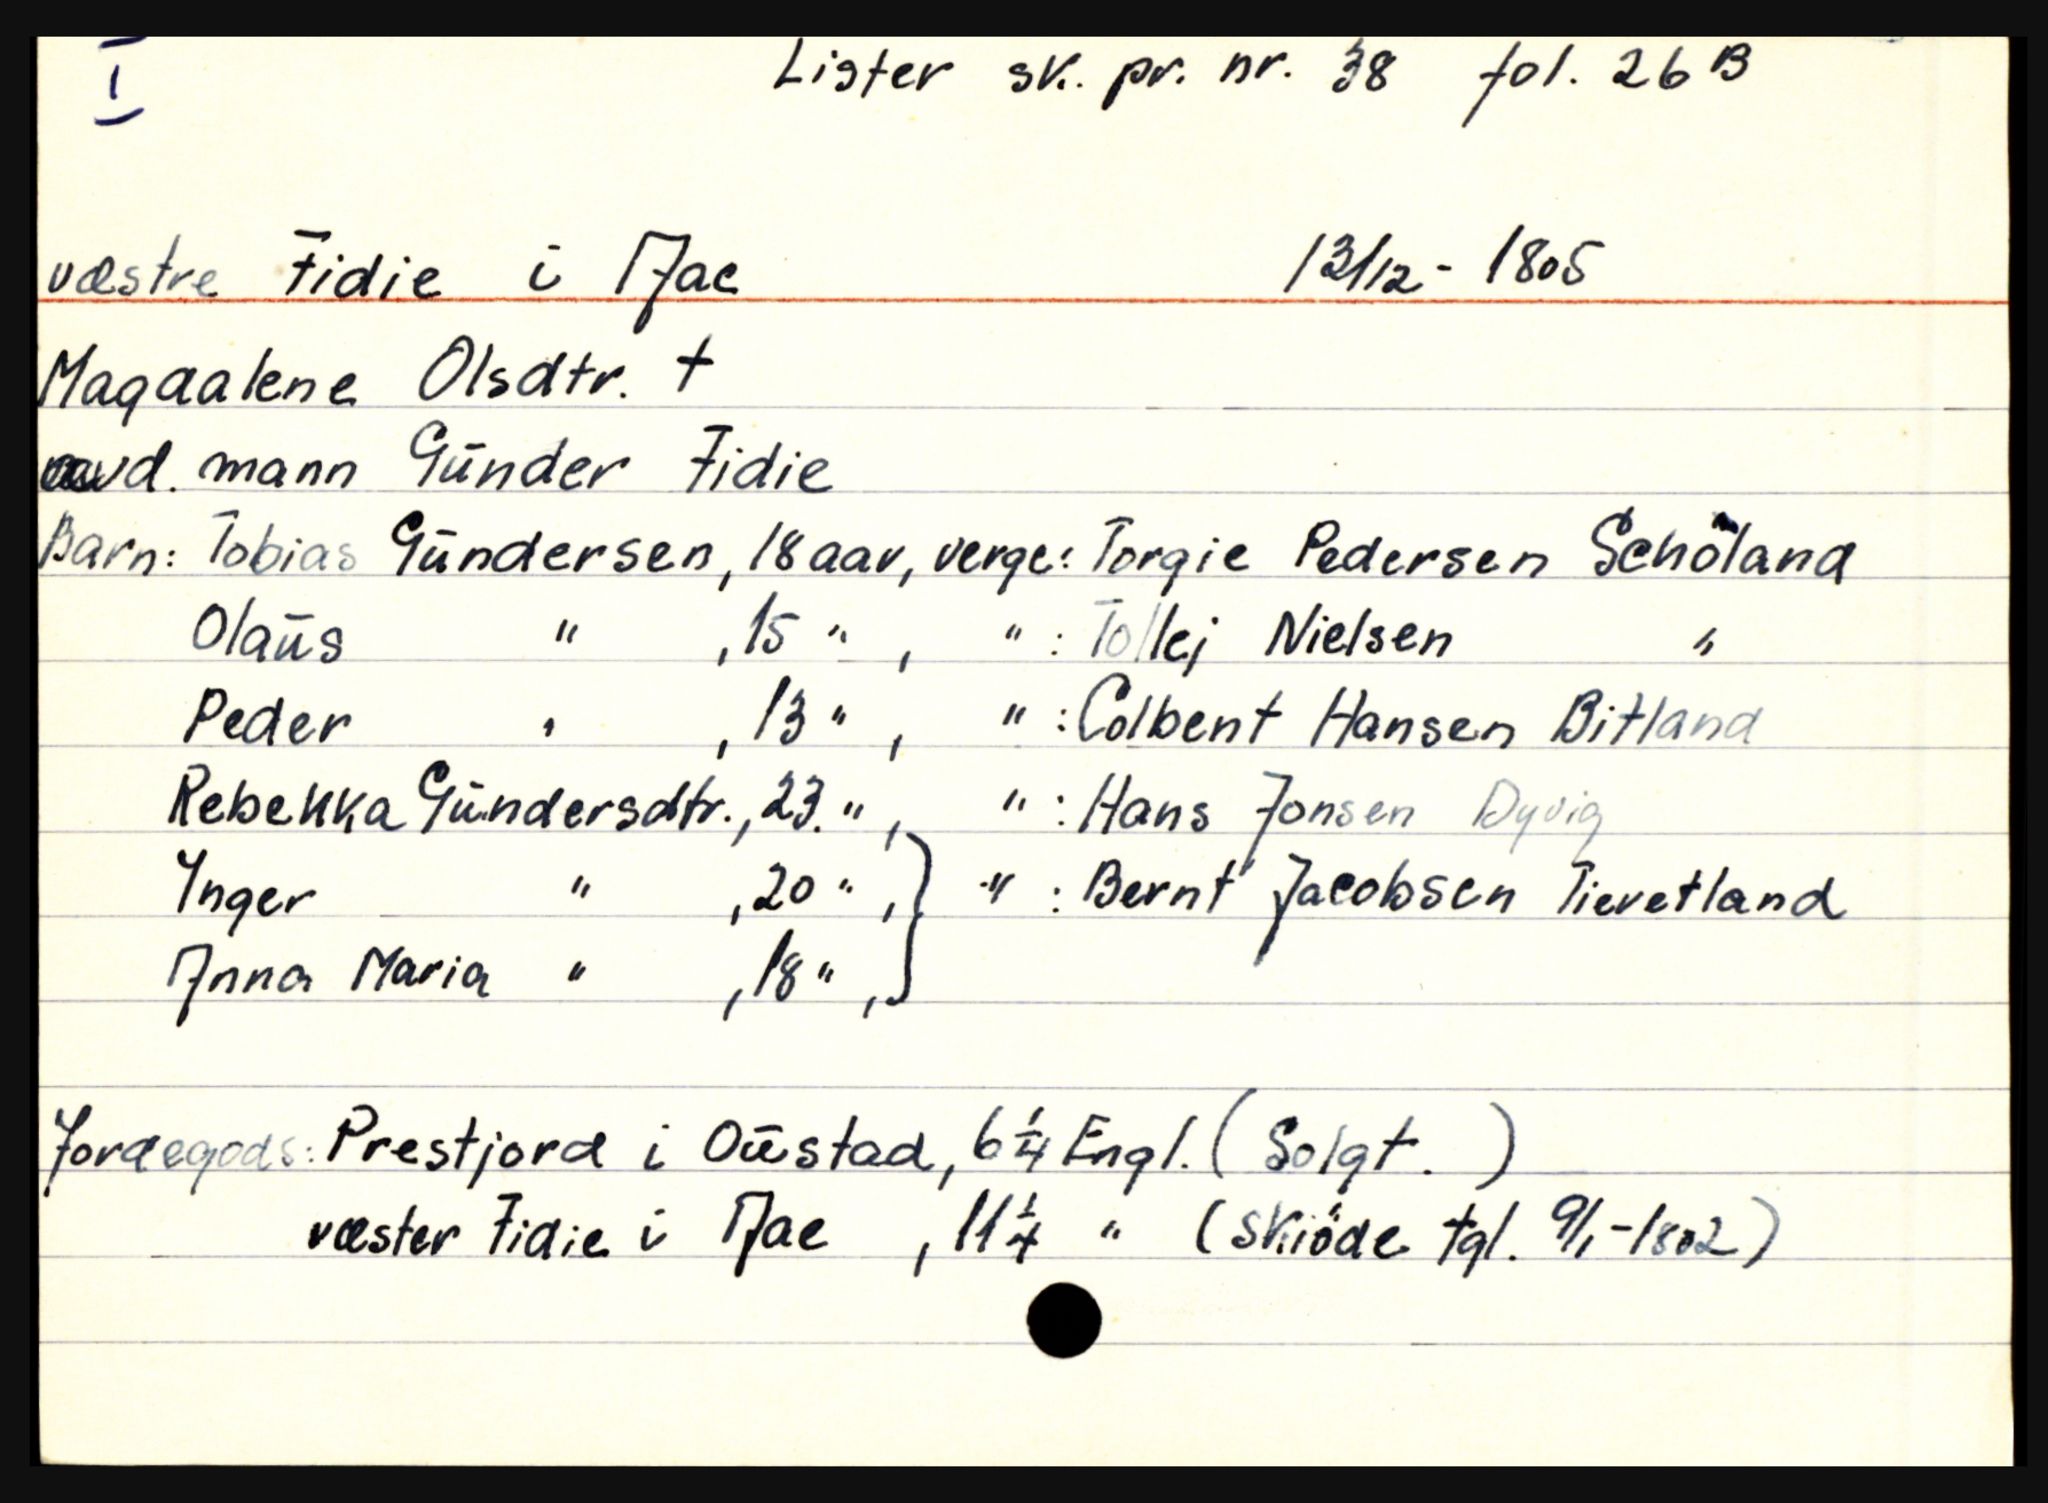 I
Lister sk. pr. nr. 38 fol. 26 B
væstre Fidie i Aae 13/12 - 1805
Magdalene Olsdtr. †
avd. mann Günder Fidie
Barn: Tobias Gündersen, 18 aar, verge: Torgie Pedersen Schöland
Olaüs " , 15 " , " : Tollej Nielsen "
Peder " , 13 " , " : Colbent Hansen Bitland
Rebekka Gündersdtr., 23. " , " : Hans Jonsen Dyvig
Ynger " , 20 " , } " : Bernt Jacobsen Tievetland
Anna Maria " , 18 " ,
Jordegods: Prestjord i Oüstad, 6 1/4 Engl. (Solgt.)
væster Fidie i Aae , 11 1/4 " (skiöde tgl. 9/1-1802)